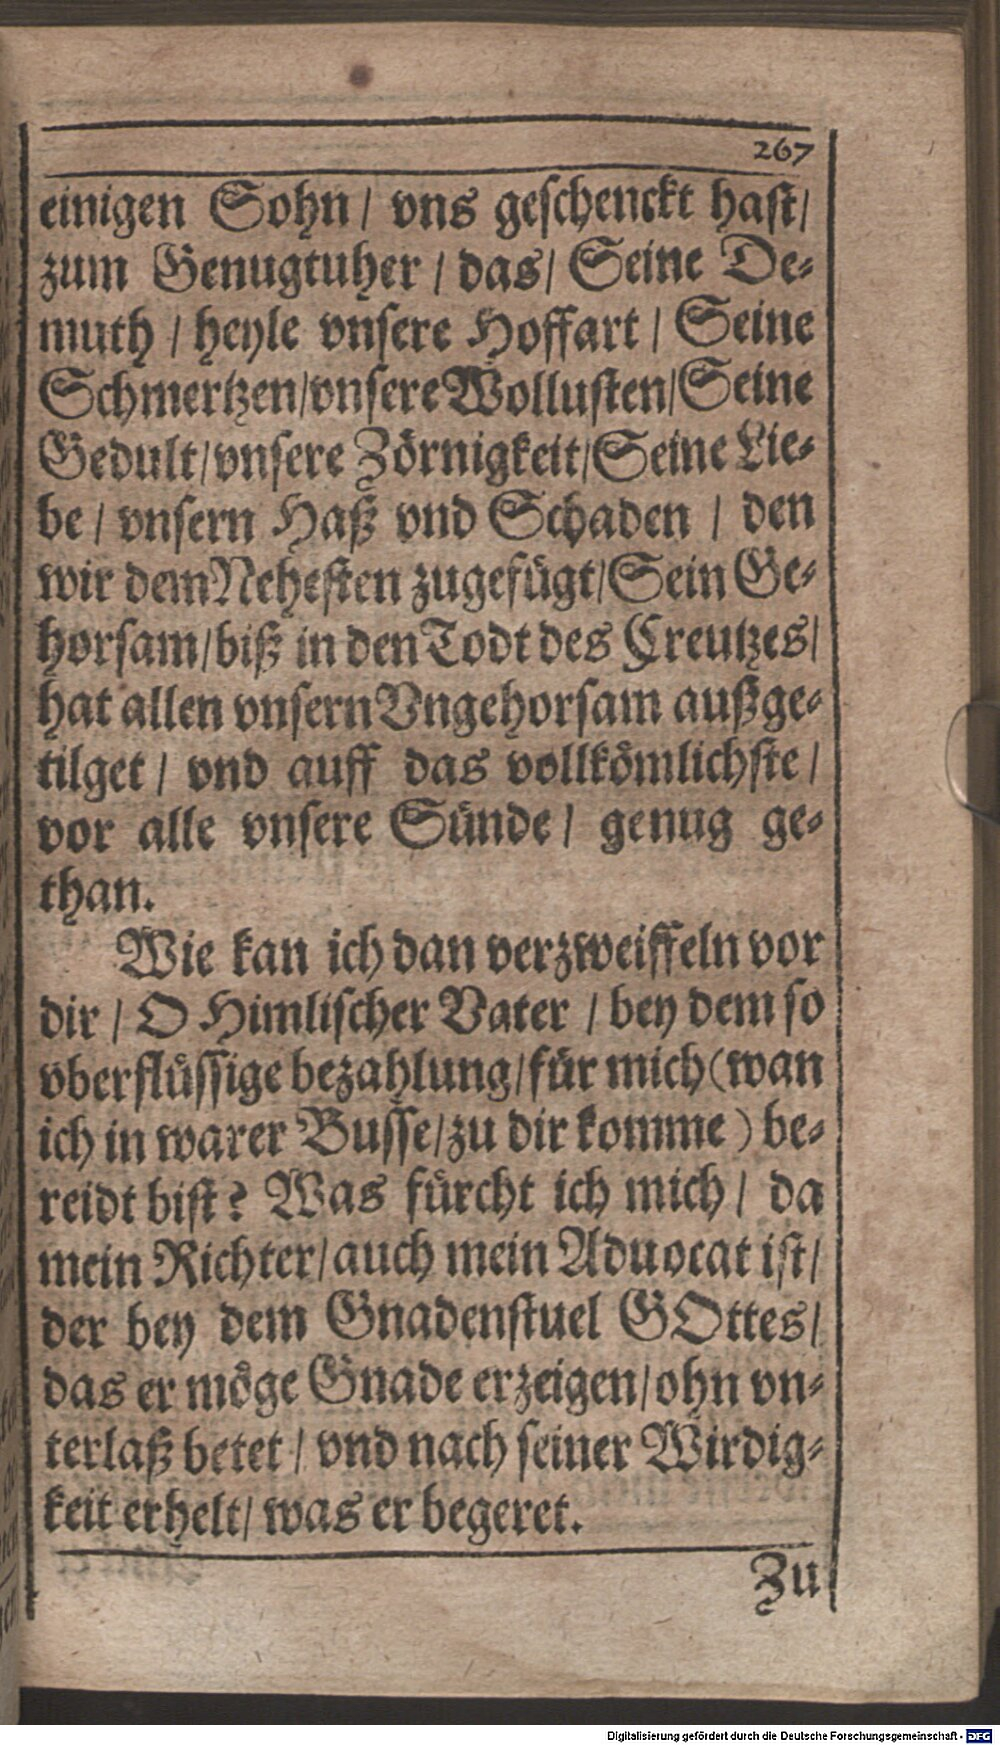 267
einigen Sohn / vns geschenckt hast /
zum Genugtuher / das / Seine De-
muth / heyle vnsere Hoffart / Seine
Schmertzen / vnsere Wollusten / Seine
Gedult / vnsere Zörnigkeit / Seine Lie-
be / vnsern Haß vnd Schaden / den
wir dem Nehesten zugefügt / Sein Ge-
horsam / biß in den Todt des Creutzes /
hat allen vnsern Vngehorsam außge-
tilget / vnd auff das vollkömlichste /
vor alle vnsere Sünde / genug ge-
than.
Wie kan ich dan verzweiffeln vor
dir / O Himlischer Vater / bey dem so
vberflüssige bezahlung / für mich (wan
ich in warer Busse / zu dir komme) be-
reidt bist? Was fürcht ich mich / da
mein Richter / auch mein Aduocat ist /
der bey dem Gnadenstuel GOttes /
das er möge Gnade erzeigen / ohn vn-
terlaß betet / vnd nach seiner Wirdig-
keit erhelt / was er begeret.
Zu
Digitalisierung gefördert durch die Deutsche Forschungsgemeinschaft - DFG